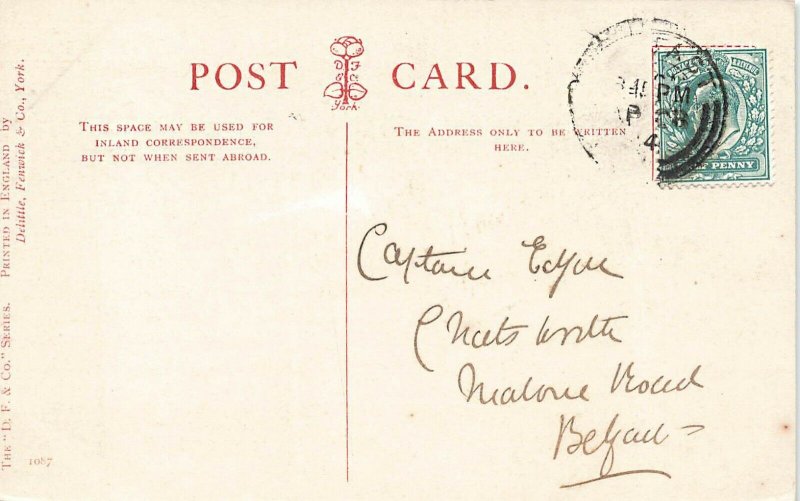 POST CARD.
D F
& Co
York.
THIS SPACE MAY BE USED FOR
INLAND CORRESPONDENCE,
BUT NOT WHEN SENT ABROAD.
THE ADDRESS ONLY TO BE WRITTEN
HERE.
3 45 PM
AP 26
4
HALF PENNY
Captain
Chatsworth
Malone Road
Belfast
THE "D. F. & Co." SERIES. PRINTED IN ENGLAND by
Delittle, Fenwick & Co., York.
1087